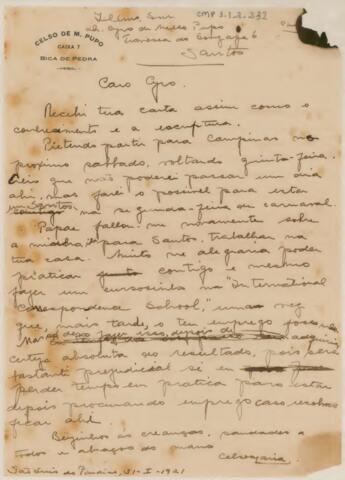 CELSO DE M. PUPO
CAIXA 7
BICA DE PEDRA
CMP 3.1.2.232
Illmo Snr
Cyro de Mello Pupo
Travessa do Gonzaga 6
Santos
Caro Cyro.
Recebi tua carta assim como o
conhecimento e a escriptura.
Pretendo partir para Campinas no
proximo sabbado, voltando quinta-feira.
Creio que não poderei passar um dia
ahi, mas farei o possivel para estar
em Santos na segunda-feira de carnaval.
Papae fallou-me novamente sobre
a minha para Santos, trabalhar na
tua casa. Muito me alegraria poder
praticar contigo e mesmo
fazer um cursosinho na "International
Correspondence School," uma vez
que, mais tarde, o teu emprego
Mas só devo fazer isso, depois de adquirir
certeza absoluta do resultado, pois será
bastante prejudicial se eu
perder tempo em pratica para estar
depois procurando emprego caso resolvas
ficar ahi.
Beijinhos às creanças, saudades a
todos e abraços do mano
Celso Maria.
São Luis do Paraiso, 31-I-1921